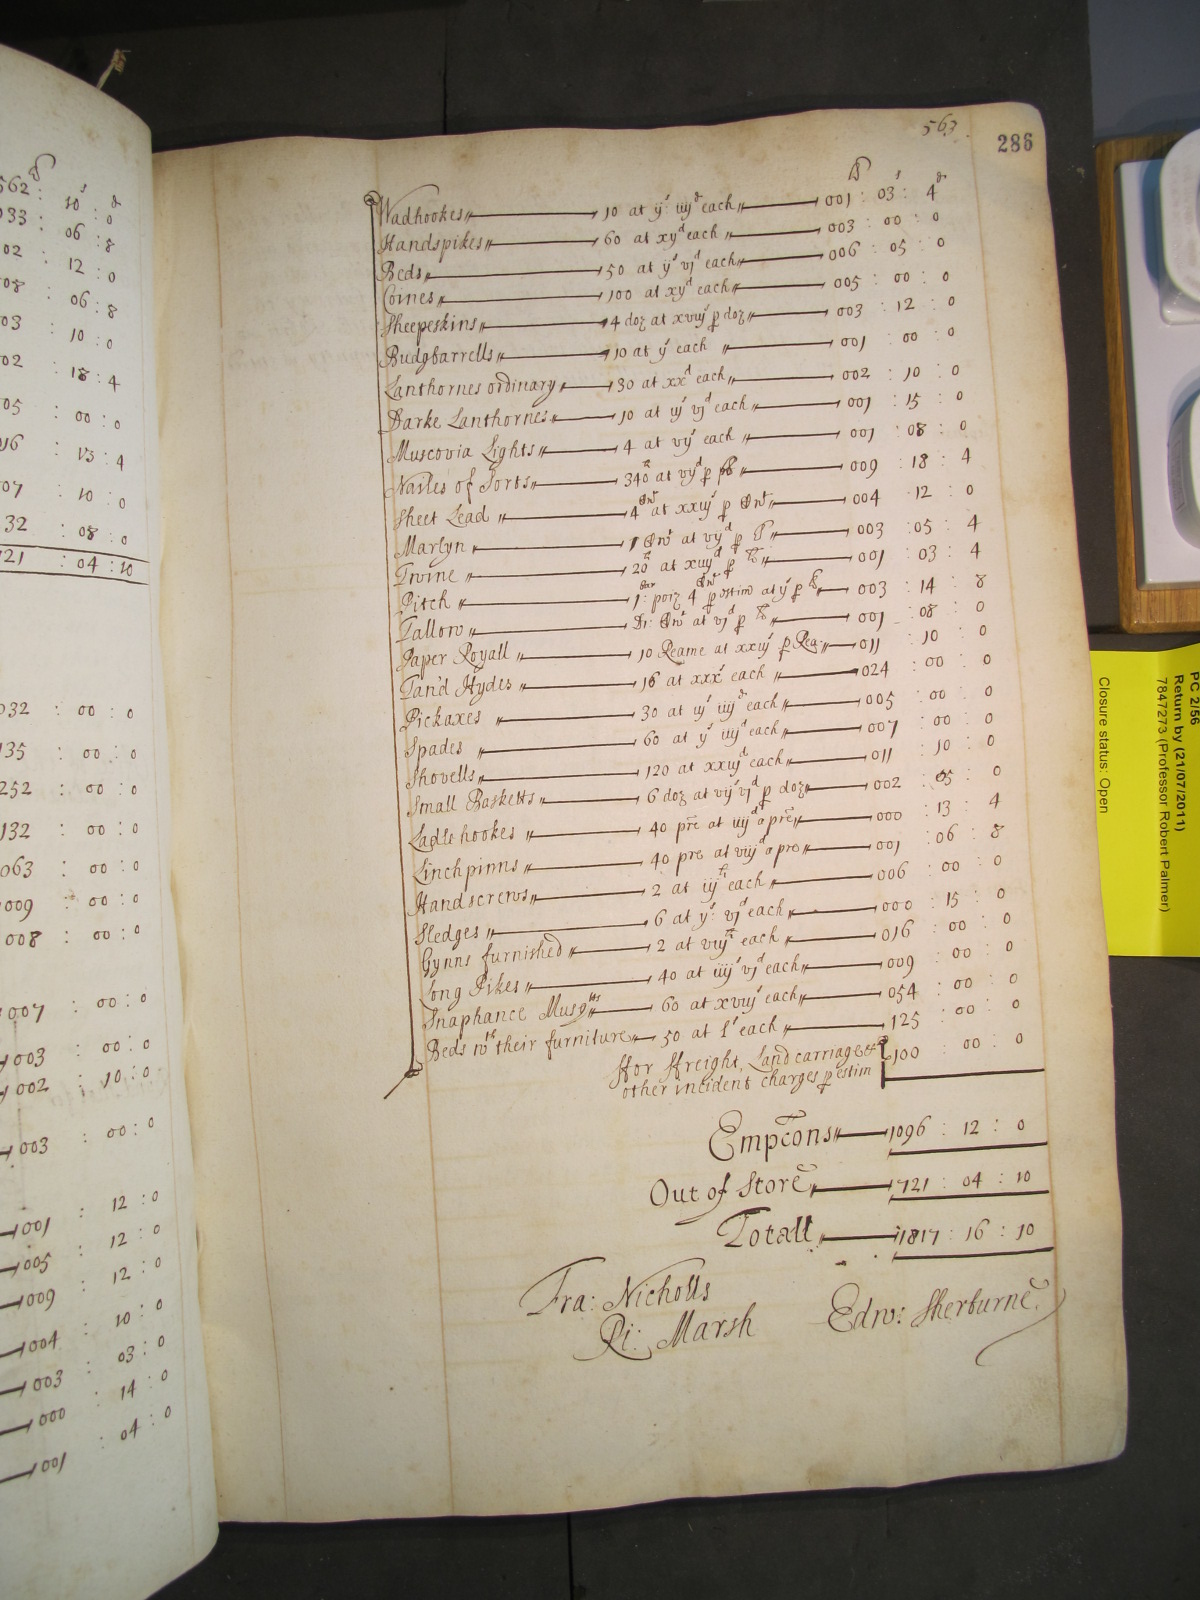 563
286
li s d
Wadhookes 10 at ijs iiijd each 001 : 03 : 4
Handspikes 60 at xijd each 003 : 00 : 0
Beds 50 at ijs vjd each 006 : 05 : 0
Coines 100 at xijd each 005 : 00 : 0
Sheepeskins 4 doz at xviijs p doz 003 : 12 : 0
Budgbarrells 10 at ijs each 001 : 00 : 0
Lanthornes ordinary 30 at xxd each 002 : 10 : 0
Darke Lanthornes 10 at iijs vjd each 001 : 15 : 0
Muscovia Lights 4 at vijs each 001 : 08 : 0
Nailes of Sorts 340li at vijd p li 009 : 18 : 4
Sheet Lead 4Cwt at xxiijs p Cwt 004 : 12 : 0
Marlyn 1 Cwt at vijd p li 003 : 05 : 4
Twine 20li at xiiijd p li 001 : 03 : 4
Pitch 1: bar poiz 4 Cwt p estim at ijd p li 003 : 14 : 8
Tallow Di: Cwt at vjd p li 001 : 08 : 0
Paper Royall 10 Reame at xxiijs p Rea: 011 : 10 : 0
Tan'd Hydes 16 at xxxs each 024 : 00 : 0
Pickaxes 30 at iijs iiijd each 005 : 00 : 0
Spades 60 at ijs iiijd each 007 : 00 : 0
Shovells 120 at xxiijd each 011 : 10 : 0
Small Basketts 6 doz at vijs vjd p doz 002 : 05 : 0
Ladle hookes 40 pre at iiijd a pre 000 : 13 : 4
Linchpinns 40 pre at viijd a pre 001 : 06 : 8
Handscrews 2 at iijli each 006 : 00 : 0
Sledges 6 at ijs: vjd each 000 : 15 : 0
Gynns furnished 2 at viijli each 016 : 00 : 0
Long Pikes 40 at iiijs vjd each 009 : 00 : 0
Snaphance Musqtts 60 at xviijs each 054 : 00 : 0
Beds wth their furniture 50 at ls each 125 : 00 : 0
ffor ffreight, Land carriage &
other incident charges p estim 100 : 00 : 0
Empcons 1096 : 12 : 0
Out of Store 721 : 04 : 10
Totall 1817 : 16 : 10
Fra: Nicholls
Ri: Marsh
Edw: Sherburne
562 :
li s d
033 : 10 : 0
02 : 06 : 8
08 : 12 : 0
03 : 06 : 8
02 : 10 : 0
05 : 18 : 4
016 : 00 : 0
07 : 13 : 4
32 : 10 : 0
: 08 : 0
721 : 04 : 10
032 : 00 : 0
135 : 00 : 0
252 : 00 : 0
132 : 00 : 0
063 : 00 : 0
009 : 00 : 0
008 : 00 : 0
007 : 00 : 0
003 : 00 : 0
002 : 10 : 0
003 : 00 : 0
001 : 12 : 0
005 : 12 : 0
009 : 12 : 0
004 : 10 : 0
003 : 03 : 0
000 : 14 : 0
001 : 04 : 0
PC 2/56
Return by (21/07/2011)
7847273 (Professor Robert Palmer)
Closure status: Open